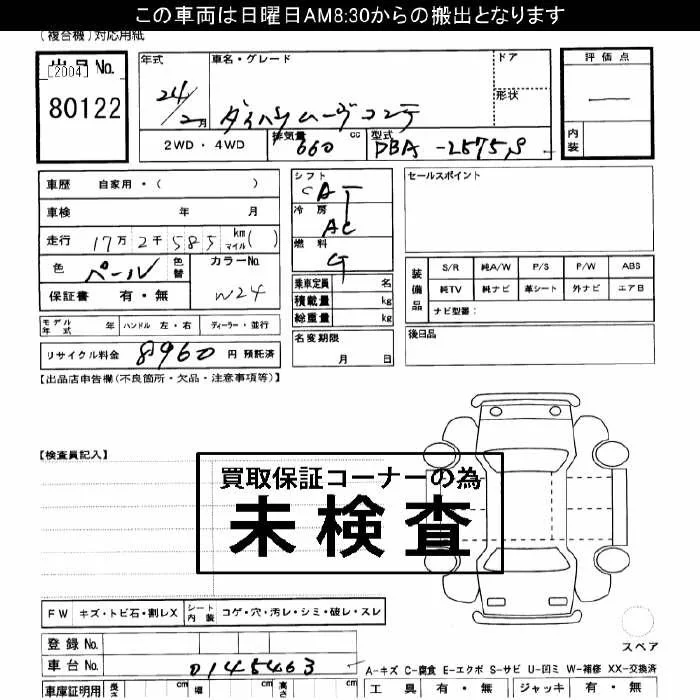 この車両は日曜日AM8:30からの搬出となります
(複合機)対応用紙
出品No.
[2004]
80122
年式 車名・グレード ドア
24/2月 ダイハツムーヴコンテ 形状
評価点
内装
2WD・4WD 排気量 660 cc 型式 DBA-L575S
車歴 自家用・( )
車検 年 月
走行 17万2千585 km マイル( )
色 パール 色替 カラーNo. W24
保証書 有・無
シフト CAT
冷房 AC
燃料 G
乗車定員 名
積載量 kg
総重量 kg
セールスポイント
装備品 S/R 純A/W P/S P/W ABS
純TV 純ナビ 革シート 外ナビ エアB
ナビ型番:
モデル年式 年 ハンドル 左・右 ディーラー・並行
名変期限 月 日
後日品
リサイクル料金 8960 円 預託済
【出品店申告欄(不良箇所・欠品・注意事項等)】
【検査員記入】
買取保証コーナーの為
未検査
FW キズ・トビ石・割レX シート内装 コゲ・穴・汚レ・シミ・破レ・スレ
スペア
登録No.
車台No. 0145463
A-キズ C-腐食 E-エクボ S-サビ U-凹ミ W-補修 XX-交換済
車庫証明用 長さ cm 幅 cm 高さ cm 工具 有・無 ジャッキ 有・無